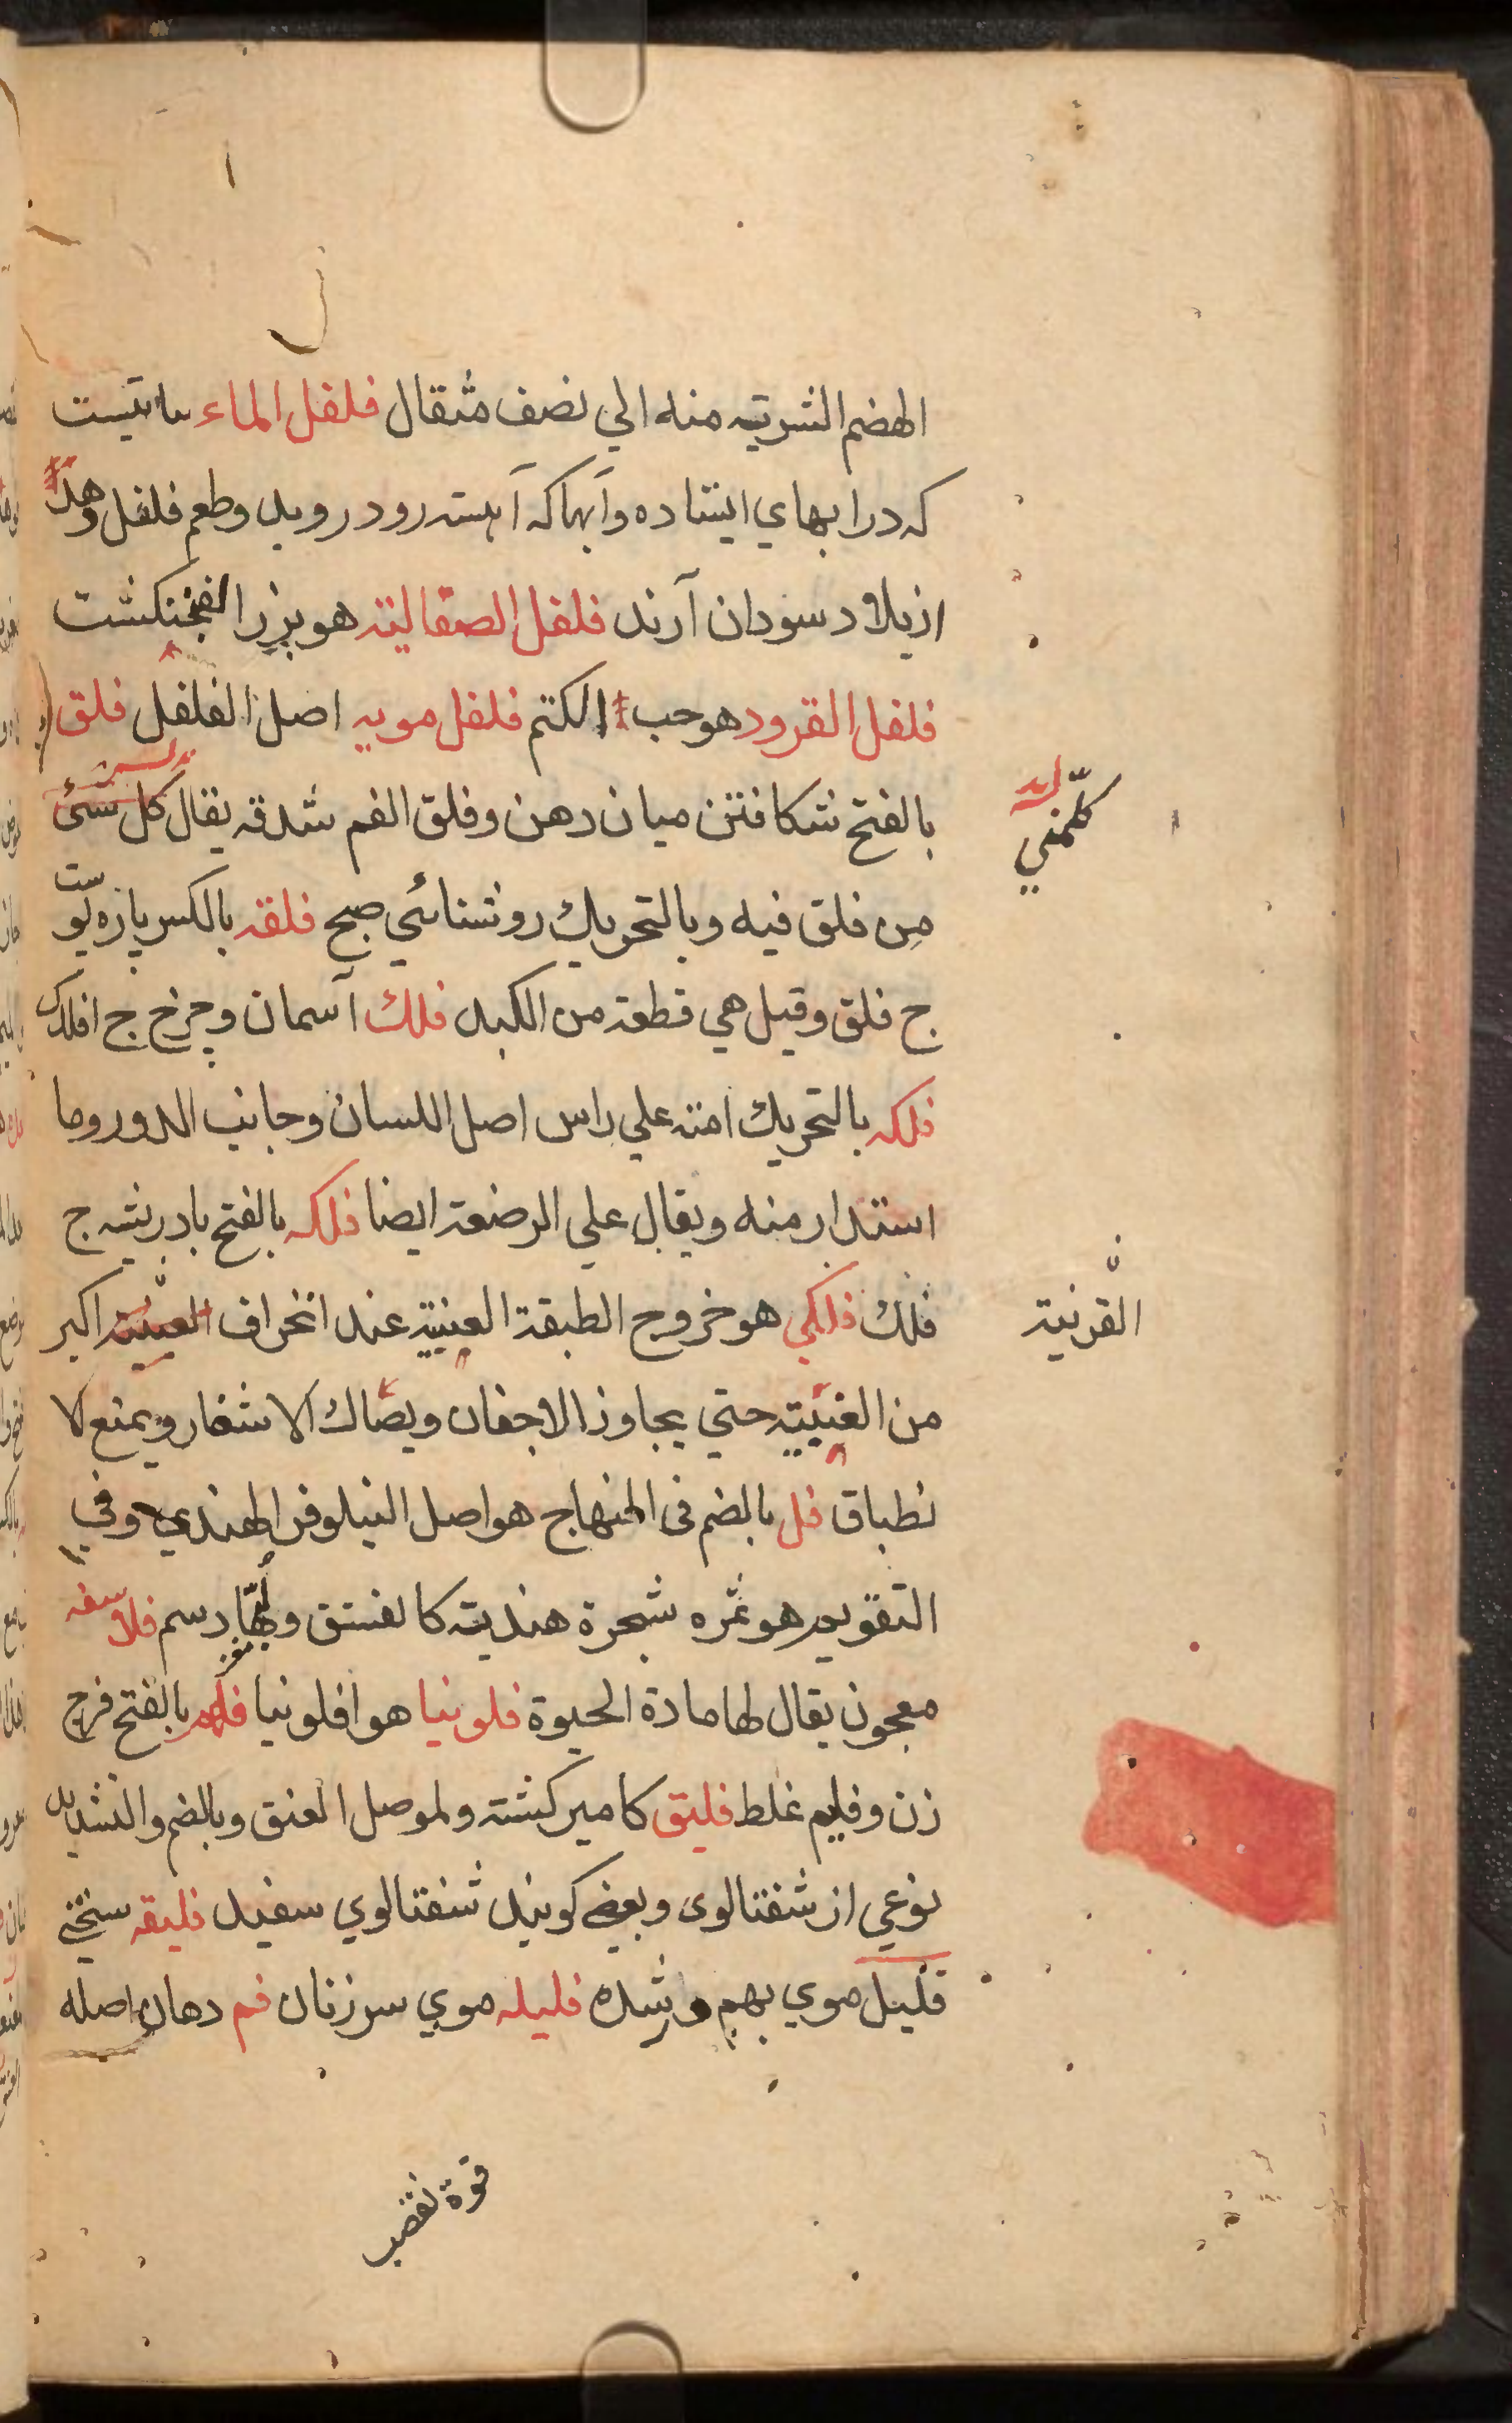 الهضم الشربته منه الي نصف مثقال فلفل الماء نباتیست
که درابهاي ایستاده وآبها که آهسته رود روید وطعم فلفل
ازبلاد سودان آرند فلفل الصقالیة هو بزر الفنجنکشت
فلفل القرود هو حب الکتم فلفل مویه اصل الفلفل فلق
بالفتح شکافتن میان دهن وفلق الفم شدقه یقال کل شئ
کلّمني
من فلق فیه وبالتحریك روشنائي صبح فلقه بالکسر پاره پوست
ج فلق وقیل هي قطعة من الکبد فلك آسمان وچرخ ج افلاك
فلکه بالتحریك امنه علي راس اصل اللسان وجانب الدور وما
استدار منه ویقال علي الرضعة ایضا فلکه بالفتح بادریشه ج
فلك فلکي هو خروج الطبقة العنبیة عند انخراف العنبیة اکبر
القرنیة
من العنبیته حتي یجاوز الاجفان ویصاك الاشفار ویمنع الا
نطباق فل بالضم فی المنهاج هو اصل النیلوفر الهندي وفي
التقویم هو ثمره شجرة هندیته کالفستق ولبها دسم فلاسفه
معجون یقال لها مادة الحیوة فلونیا هو افلونیا فلهم بالفتح فرج
زن وفلیم غلط فلیق کامیر کشته ولموصل العنق وبالضم والتشدید
نوعي از شفتالوی وبعضي کویند شفتالوي سفید فلیقه سختی
فلیل موي بهم شده فلیله موي سر زنان فم دهان اصله